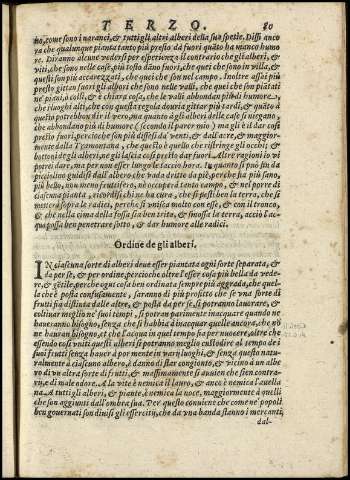 TERZO. 80
no, come sono i naranci, & tutti gli altri alberi della sua spetie. Dissi anco
ra che qualunque pianta tanto piu presto dà fuori quãto ha manco humo
re. Diranno alcune vedersi per esperienza il contrario che gli alberi, &
viti, che sono nelle case, piu tosto dãno fuori, che quei che sono in villa, &
questi son piu accarezzati, che quei che son nel campo. Inoltre assai piu
presto gittan fuori gli alberi che sono nelle valli, che quei che son piãtati
ne' piani, ò colli, & è chiara cosa, che le valli abbondan piu di humore,
che i luoghi alti, che con questa regola douria gittar piu tardi, & quãto à
questo potrebbon dir il vero, ma quanto à gli alberi delle case si niegano,
che abbondano piu di humore (secondo il parer mio) ma gli è il dar cosi
presto fuori, percioche son piu difesi da' venti, & dall'aere, & maggior-
mente dalla Tramontana, che questo è quello che ristringe gli occhi, &
bottoni de gli alberi, ne gli lascia cosi presto dar fuori. Altre ragioni io vi
potrei dare, ma per non esser lungo le taccio hora. In quanto si pon in da
picciolino guidisi dall'albero che vada dritto da piè, perche fia piu sano,
piu bello, non meno fruttifero, nè occuperà tanto campo, & nel porre di
ciascuna pianta, ricordisi chi ne ha cura, che si pesti ben la terra, che si
metterà sopra le radici, perche si vnisca molto con esse, & con il tronco,
& che nella cima della fossa sia ben trito, & smossa la terra, acciò l'ac-
qua possa ben penetrare sotto, & dar humore alle radici.
Ordine de gli alberi.
IN ciascuna sorte di alberi deue esser piantata ogni sorte separata, &
da per se, & per ordine, percioche oltre l'esser cosa piu bella da vede-
re, & gẽtile, perche ogni cosa ben ordinata sempre piu aggrada, che quel-
la che è posta confusamente, saranno di piu profitto che se vna sorte di
frutti sia distinta dalle altre, & posta da per se, si potranno lauorare, &
coltiuar meglio ne' suoi tempi, si potran parimente inacquare quando ne
haueranno bisogno, senza che si habbia à inacquar quelle ancora, che nõ
ne hauran bisogno, et che l'acqua in quel tempo fia per nuocere, oltre che
essendo cosi vniti questi alberi si potranno meglio custodire al tempo de i
suoi frutti senza hauer à por mente in varij luoghi, & senza questo natu-
ralmente à ciascuno albero, è danno di star congionto, & vicino à un albe
ro di vn'altra sorte di frutti, & massimamente si auuien che sien contra-
rij, e di male odore. A la vite è nemica il lauro, & anco è nemica l'auella
na. A tutti gli alberi, & piante, è nemica la noce, maggiormente à quelli
che son aggiunti dall'ombra sua. Per questo conuiene che come ne' popoli
ben gouernati son diuisi gli essercitij, che da vna banda stanno i mercanti,
dal-